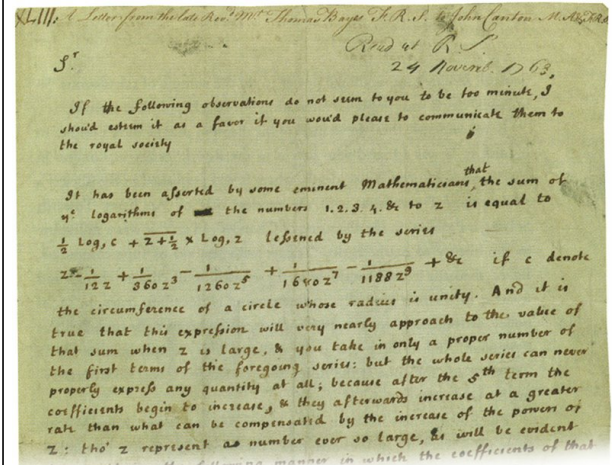 XLIII. A Letter from the late Revd. Mr. Thomas Bayes F. R. S. to John Canton M. A. & F. R. S.
Read at R S.
24 Novemb. 1763,
Sr.
If the following observations do not seem to you to be too minute, I
shoud esteem it as a favor if you woud please to communicate them to
the royal society
It has been asserted by some eminent Mathematicians that the sum of
ye logarithms of the numbers 1.2.3.4.&c to z is equal to
½ Log, c + z+½ × Log, z lessened by the series
z - 1/12z + 1/360z³ - 1/1260z⁵ + 1/1680z⁷ - 1/1188z⁹ + &c if c denote
the circumference of a circle whose radius is unity. And it is
true that this expression will very nearly approach to the value of
that sum when z is large, & you take in only a proper number of
the first terms of the foregoing series: but the whole series can never
properly express any quantity at all; because after the 5th term the
coefficients begin to increase, & they afterwards increase at a greater
rate than what can be compensated by the increase of the powers of
z: tho' z represent a number ever so large, as will be evident
following manner in which the coefficients of that